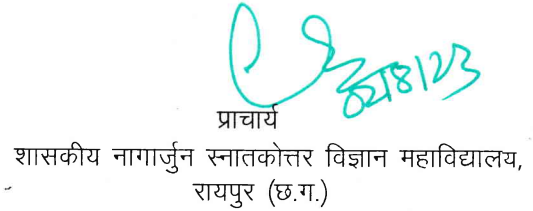 02/8/23
प्राचार्य
शासकीय नागार्जुन स्नातकोत्तर विज्ञान महाविद्यालय,
रायपुर (छ.ग.)